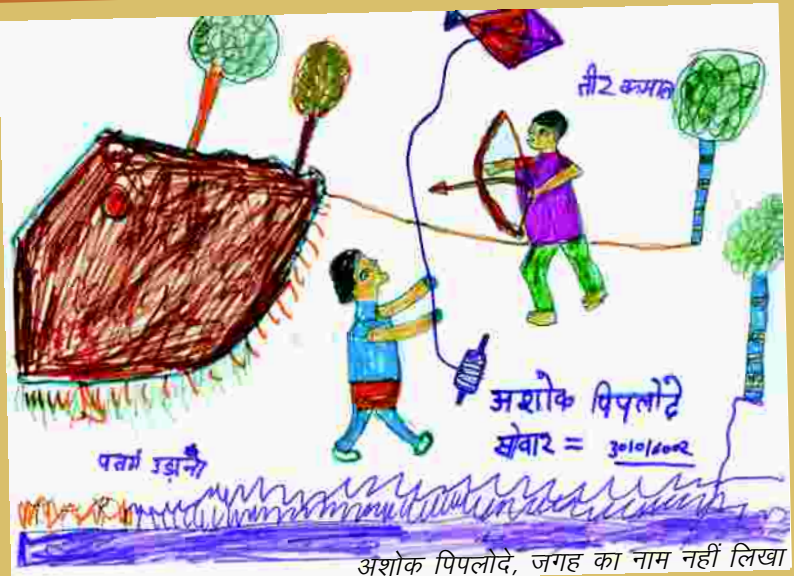 तीर कामान
अशोक पिपलोदे
सोवार =
पतगं उड़ाना
अशोक पिपलोदे, जगह का नाम नहीं लिखा